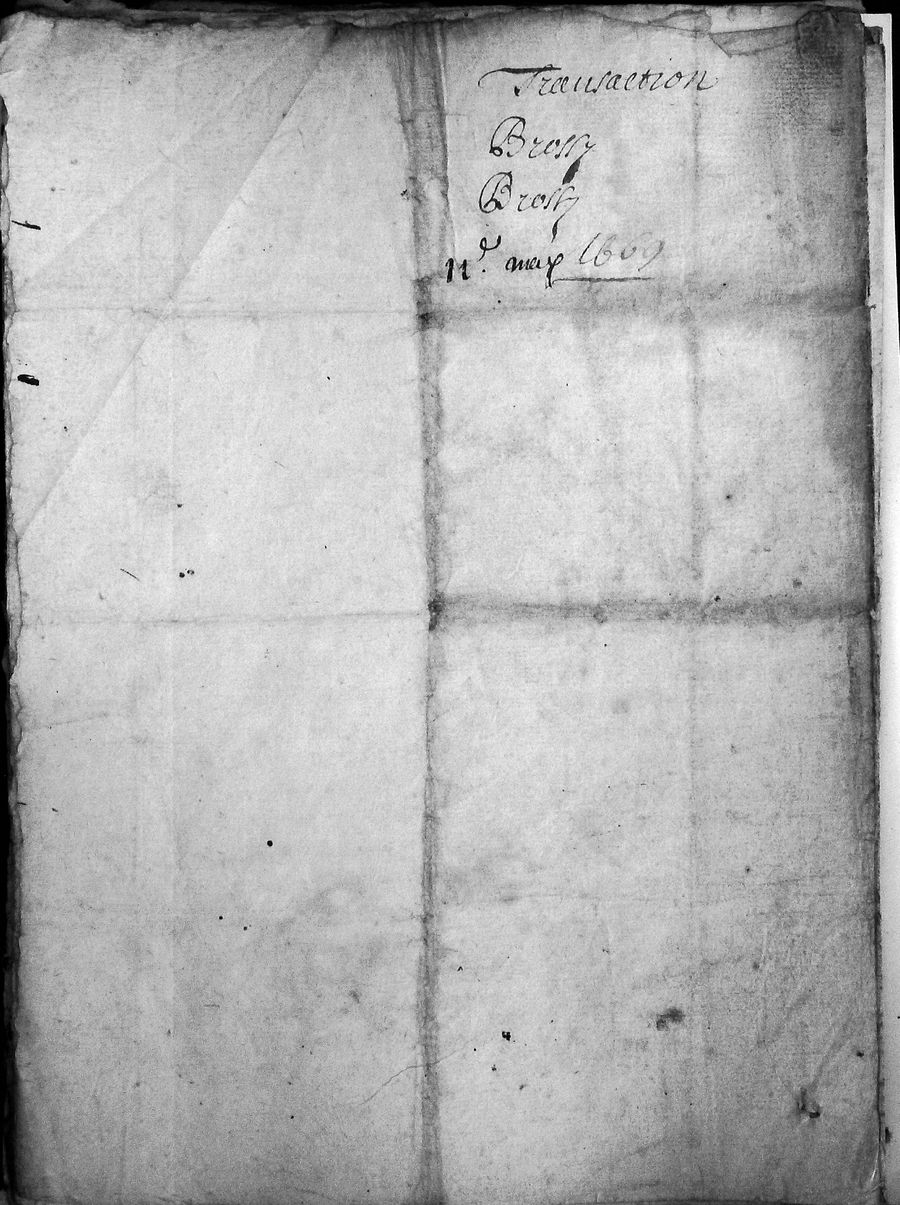 Transaction
Brossy
Brossy
11d. may 1669